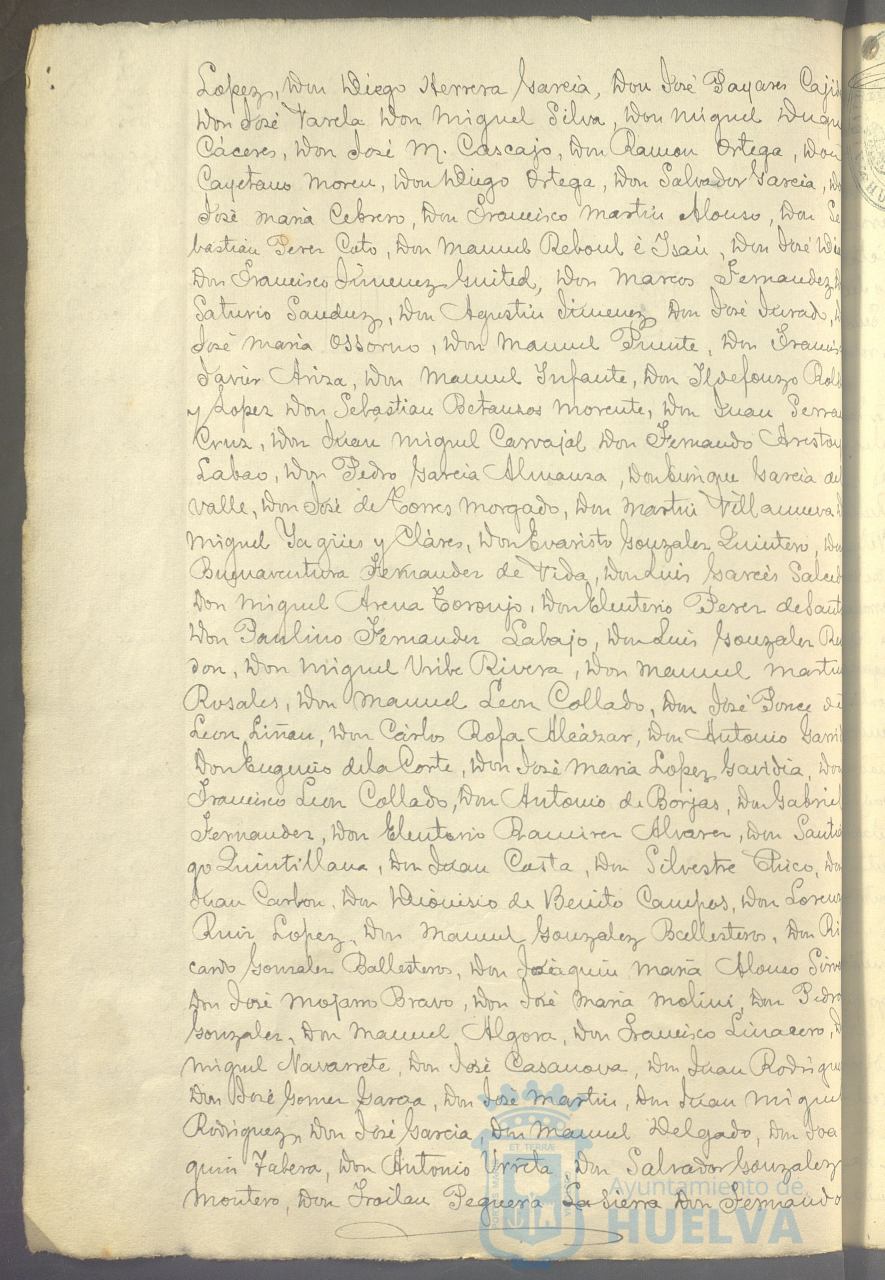 Lopez, Don Diego Herrera Garcia, Don José Payares Caji
Don José Varela Don Miguel Silva, Don Miguel Duqu
Cáceres, Don José M. Cascajo, Don Ramon Ortega, Don
Cayetano Moreu, Don Diego Ortega, Don Salvador Garcia, D
José Maria Cebrero, Don Francisco Martin Alonso, Don Se
bastián Perez Coto, Don Manuel Reboul é Isaú, Don José Di
Don Francisco Jimenez Guited, Don Marcos Fernandez
Saturio Sanduz, Don Agustin Jimenez Don José Jurado,
José Maria Ossorno, Don Manuel Puente, Don Francis
Javier Ariza, Don Manuel Infante, Don Ildefonzo Rol
y Lopez Don Sebastian Betanzos Morente, Don Juan Serra
Cruz, Don Juan Miguel Carvajal Don Fernando Aristoy
Labao, Don Pedro Garcia Almanza, Don Enrique Garcia del
Valle, Don José de Torres Morgado, Don Martin Villanueva
Miguel Yagües y Cláres, Don Evaristo Gonzalez Quintero, Don
Buenaventura Fernandez de Vida, Don Luis Garcés Salced
Don Miguel Arena Toronjo, Don Eleuterio Perez de Sant
Don Paulino Fernandez Labajo, Don Luis Gonzalez Re
don, Don Miguel Uribe Rivera, Don Manuel Martin
Rosales, Don Manuel Leon Collado, Don José Ponce de
Leon Liñan, Don Cárlos Rofa Alcázar, Don Antonio Garri
Don Eugenio de la Corte, Don José Maria Lopez Gavidia, Don
Francisco Leon Collado, Don Antonio de Borjas, Don Gabriel
Fernandez, Don Eleuterio Ramirez Alvarez, Don Santi
go Quintillana, Don Juan Casta, Don Silvestre Chico, Don
Juan Carbon, Don Dionisio de Benito Campos, Don Lorenz
Ruiz Lopez, Don Manuel Gonzalez Ballesteros, Don Ri
cardo Gonzalez Ballesteros, Don Joaquin Maria Alonso
Don José Mojarro Bravo, Don José Maria Molini, Don Pedro
Gonzalez, Don Manuel Algora, Don Francisco Linacero,
Miguel Navarrete, Don José Casanova, Don Juan Rodrigu
Don José Gomez Garcia, Don José Martin, Don Juan Miguel
Rodriguez, Don José Garcia Don Manuel Delgado, Don Joa
quin Tabera, Don Antonio Urreta, Don Salvador Gonzalez
Montero, Don Froilan Peguera Lasierra Don Fernando
Ayuntamiento de
HUELVA